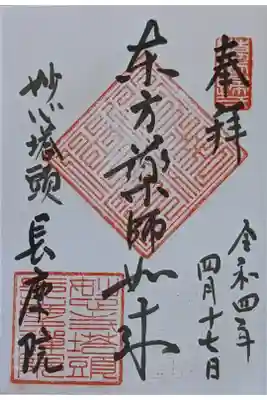 奉拝
令和四年
四月十七日
东方薬師如来
妙心塔頭
長慶院